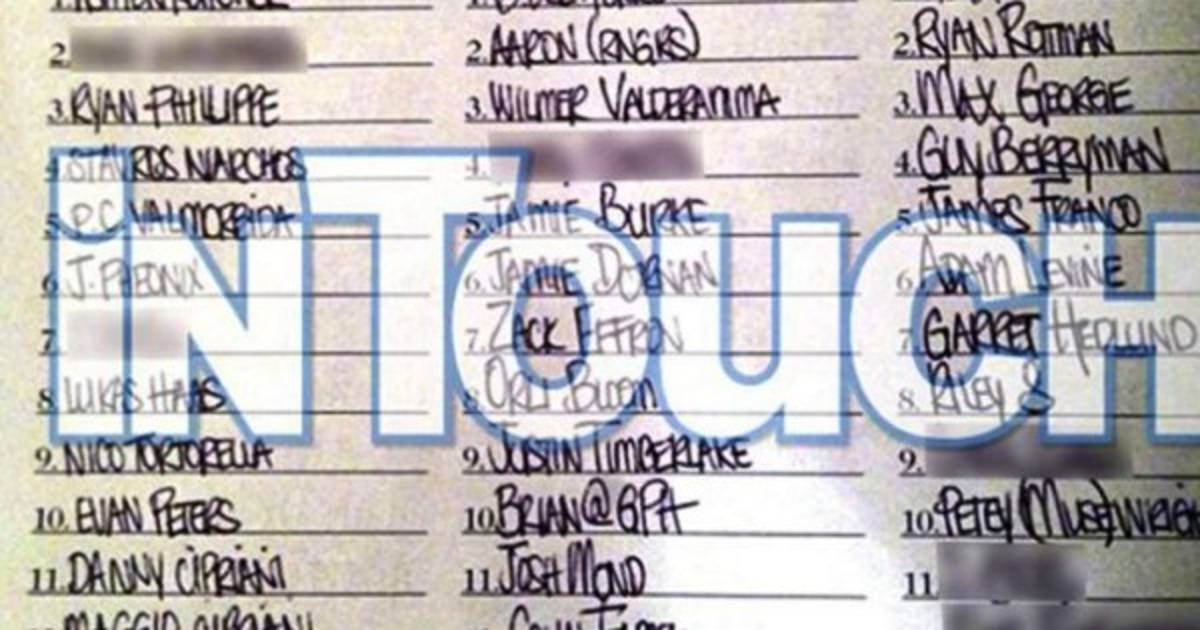 2.
3. RYAN PHILLIPPE
4. STAVROS NIARCHOS
5. P.C. VALMORBIDA
6. J. PHEONIX
7.
8. LUKAS HAAS
9. NICO TORTORELLA
10. EVAN PETERS
11. DANNY CIPRIANI
MAGGIO CIPRIANI
2. AARON (RNGRS)
3. WILMER VALDERAMMA
4.
5. JAMIE BURKE
6. JAMIE DORNAN
7. ZACK EFFRON
8. ORLI BLOOM
9. JUSTIN TIMBERLAKE
10. BRIAN @ GPA
11. JOSH MOND
2. RYAN ROTTMAN
3. MAX GEORGE
4. GUY BERRYMAN
5. JAMES FRANCO
6. ADAM LEVINE
7. GARRET HEDLUND
8. RILEY S
9.
10. PETEY (MUSE)
11.
inTouch